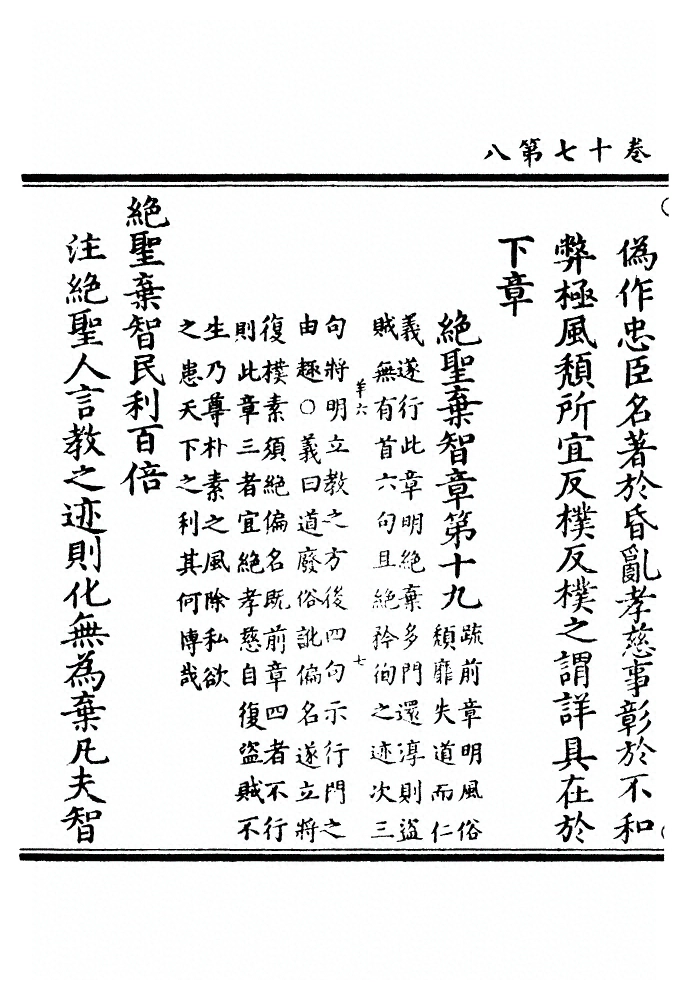 卷十七第八
偽作忠臣名著於昏亂孝慈事彰於不和
弊極風頹所宜反樸反樸之謂詳具在於
下章
絕聖棄智章第十九
疏前章明風俗
頹靡失道而仁
義遂行此章明絕棄多門還淳則盜
賊無有首六句且絕矜徇之迹次三
羊六
七
句將明立教之方後四句示行門之
由趣○義曰道廢俗訛偏名遂立將
復樸素須絕偏名既前章四者不行
則此章三者宜絕孝慈自復盜賊不
生乃尊朴素之風除私欲
之患天下之利其何博哉
絕聖棄智民利百倍
注絕聖人言教之迹則化無為棄凡夫智